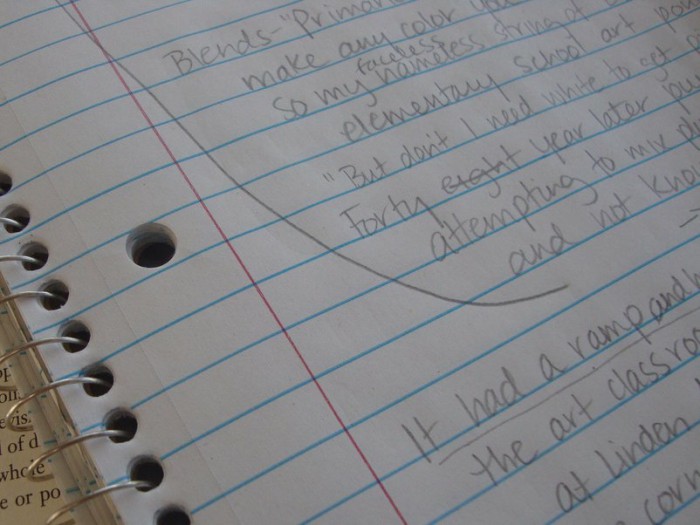 Blends - "Primar
make any color
faceless
so my nameless string of
elementary school art
"But don't I need white to get
Forty eight year later
attempting to mix
and not kno
It had a ramp and
the art classro
at Linden
corn
oll
vis
l of d
whole
e or po